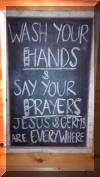 WASH YOUR
HANDS
&
SAY YOUR
PRAYERS
JESUS & GERMS
ARE EVERYWHERE